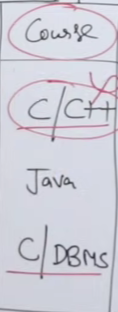 Course
C/C++
Java
C/DBMS